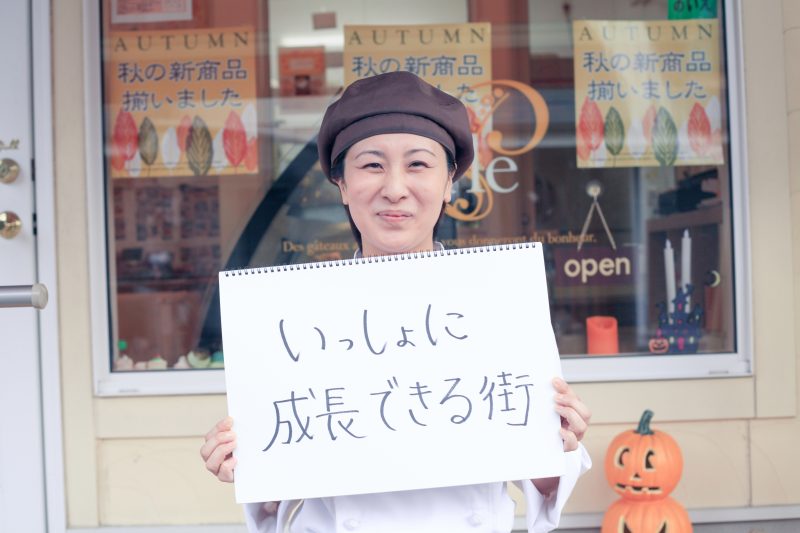 AUTUMN
秋の新商品
揃いました
AUTUMN
秋の新商品
AUTUMN
秋の新商品
揃いました
のいえ
Des gâteaux
vous donneront du bonheur.
open
いっしょに
成長できる街